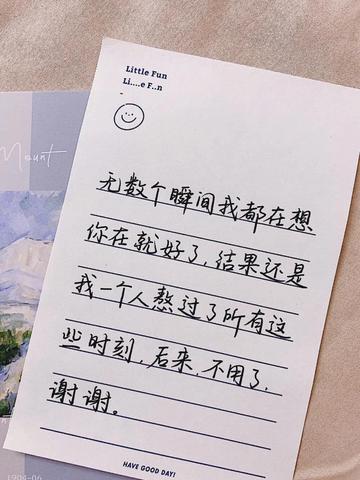 Little Fun
Li....e F..n
无数个瞬间我都在想
你在就好了,结果还是
我一个人熬过了所有这
些时刻,后来,不用了,
谢谢。
HAVE GOOD DAY!
Mount
1904-06